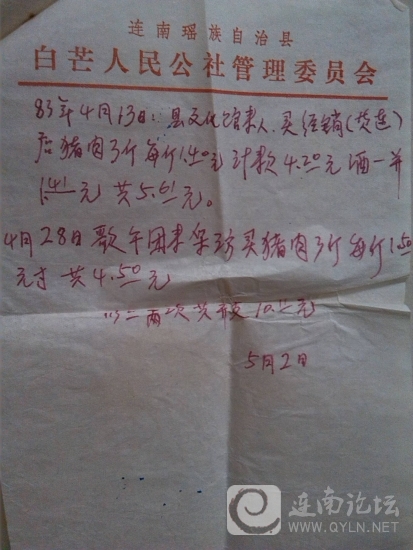 连南瑶族自治县
白芒人民公社管理委员会
83年4月13日：县文化馆来人.买经销(货莲)
店猪肉3斤每斤1.40元计款4.20元酒一并
1.41元 共5.61元。
4月28日歌午团来采访买猪肉3斤每斤1.50
元寸 共4.50元
以上两次共开支10.11元
5月2日
连南论坛
WWW.QYLN.NET